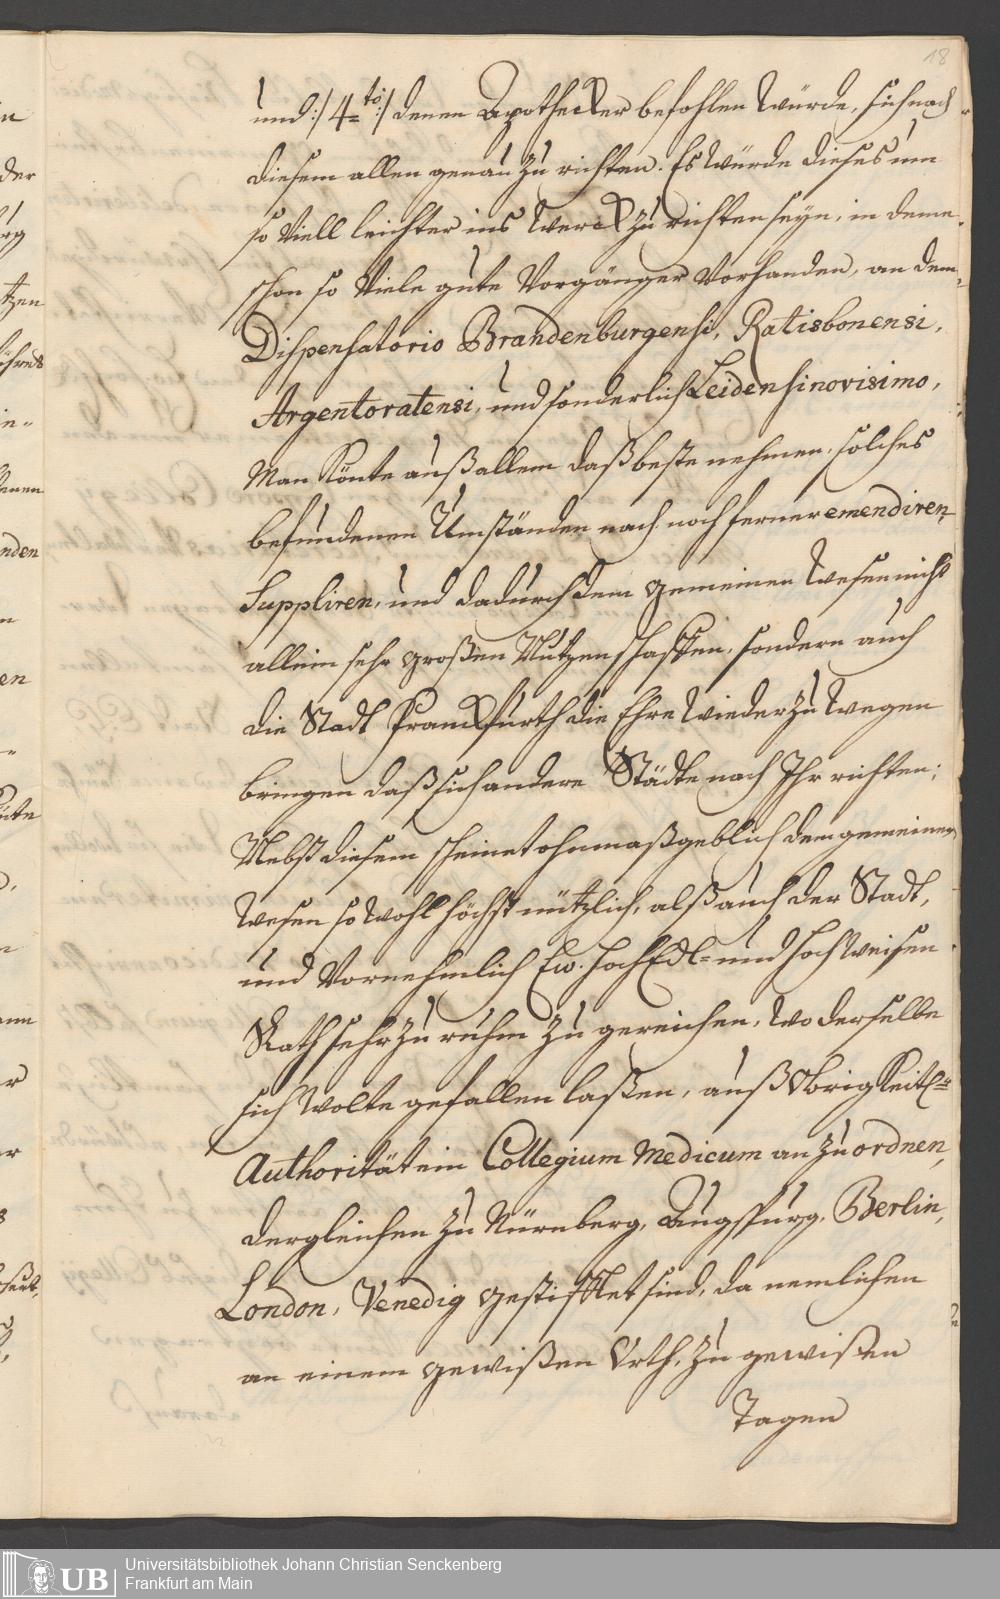 18
und :/ 4=to :/ denen Apothecker befohlen würde, sich nach
diesem allen genau zu richten. Es würde dieses um
so viell leichter ins Werck zu richten seyn, in deme
schon so viele gute Vorgänger vorhanden, an dem
Dispensatorio Brandenburgensi, Ratisbonensi,
Argentoratensi, und sonderlich Leidensi novisimo,
Man könte auß allem daß beste nehmen, solches
befundenen Umständen nach noch ferner emendiren,
Suppliren, und dadurch dem gemeinen Wesen nicht
allein sehr großen Nutzen schaffen, sondern auch
die Stadt Franckfurth die Ehre wieder zu wegen
bringen daß sich andere Städte nach Ihr richten;
Nebst diesem scheinet ohnmaßgeblich dem gemeinen
Wesen so wohl höchst nützlich, alß auch der Stadt,
und vornehmlich Ew. HochEdl= und Hochweisen
Rath sehr zu ruhm zu gereichen, wo derselbe
sich wolte gefallen laßen, auß Obrigkeitl=r
Authorität ein Collegium Medicum an zu ordnen,
dergleichen zu Nürnberg, Augspurg, Berlin,
London, Venedig gestifftet sind, da nemlichen
an einem gewißen Orth, zu gewißen
Tagen
UB
Universitätsbibliothek Johann Christian Senckenberg
Frankfurt am Main